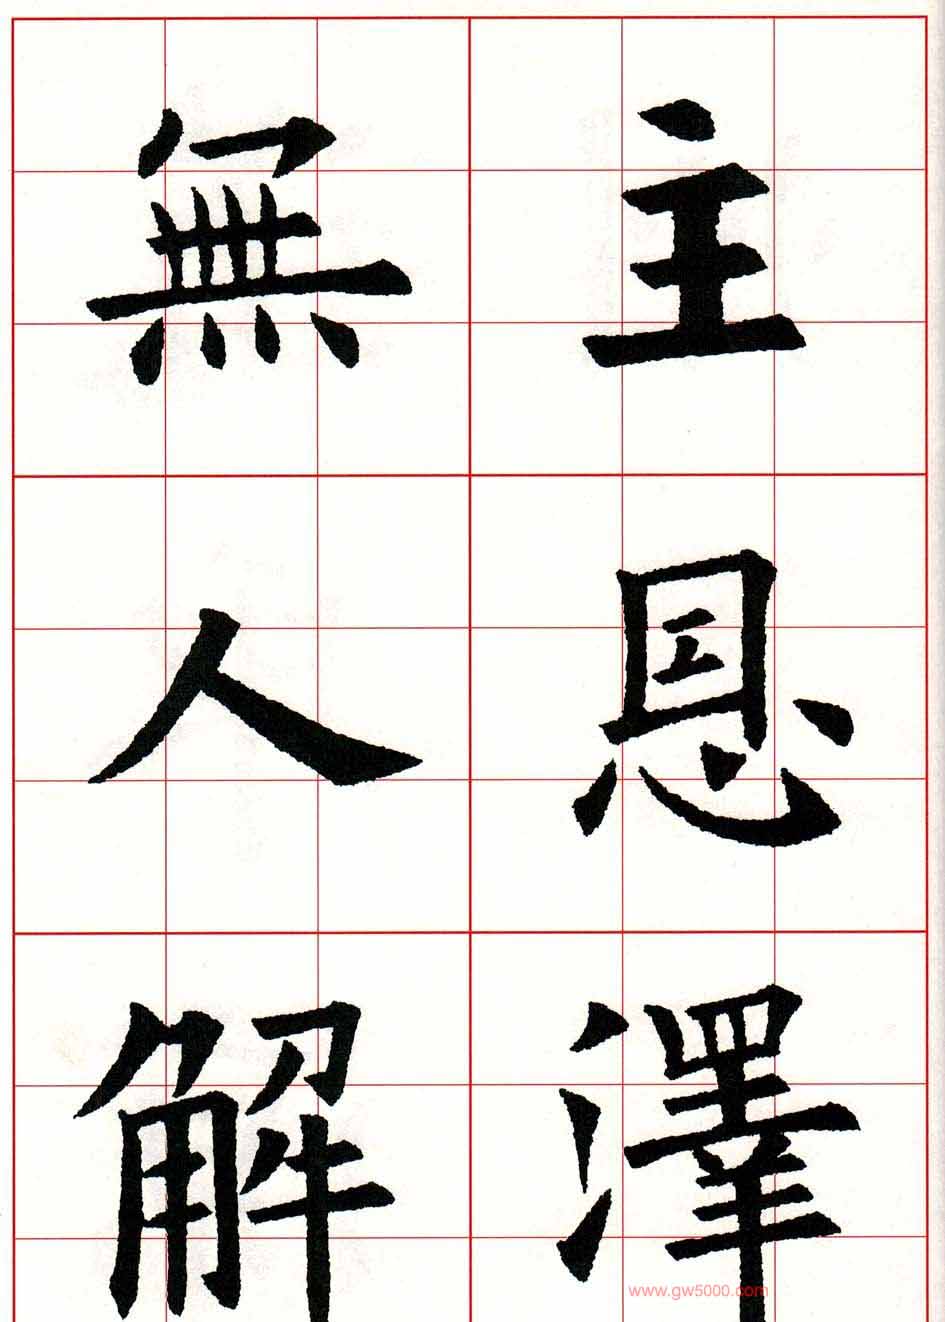 主恩澤
無人解
www.gw5000.com